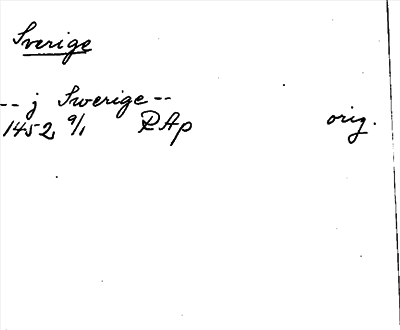 Sverige
-- j Swerige --
1452 9/1 RAp orig.